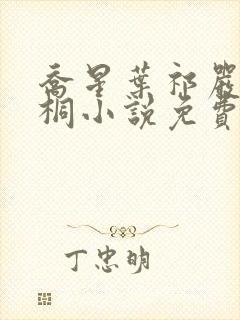 喬星葉祁嚴
桐小說免費
丁忠明